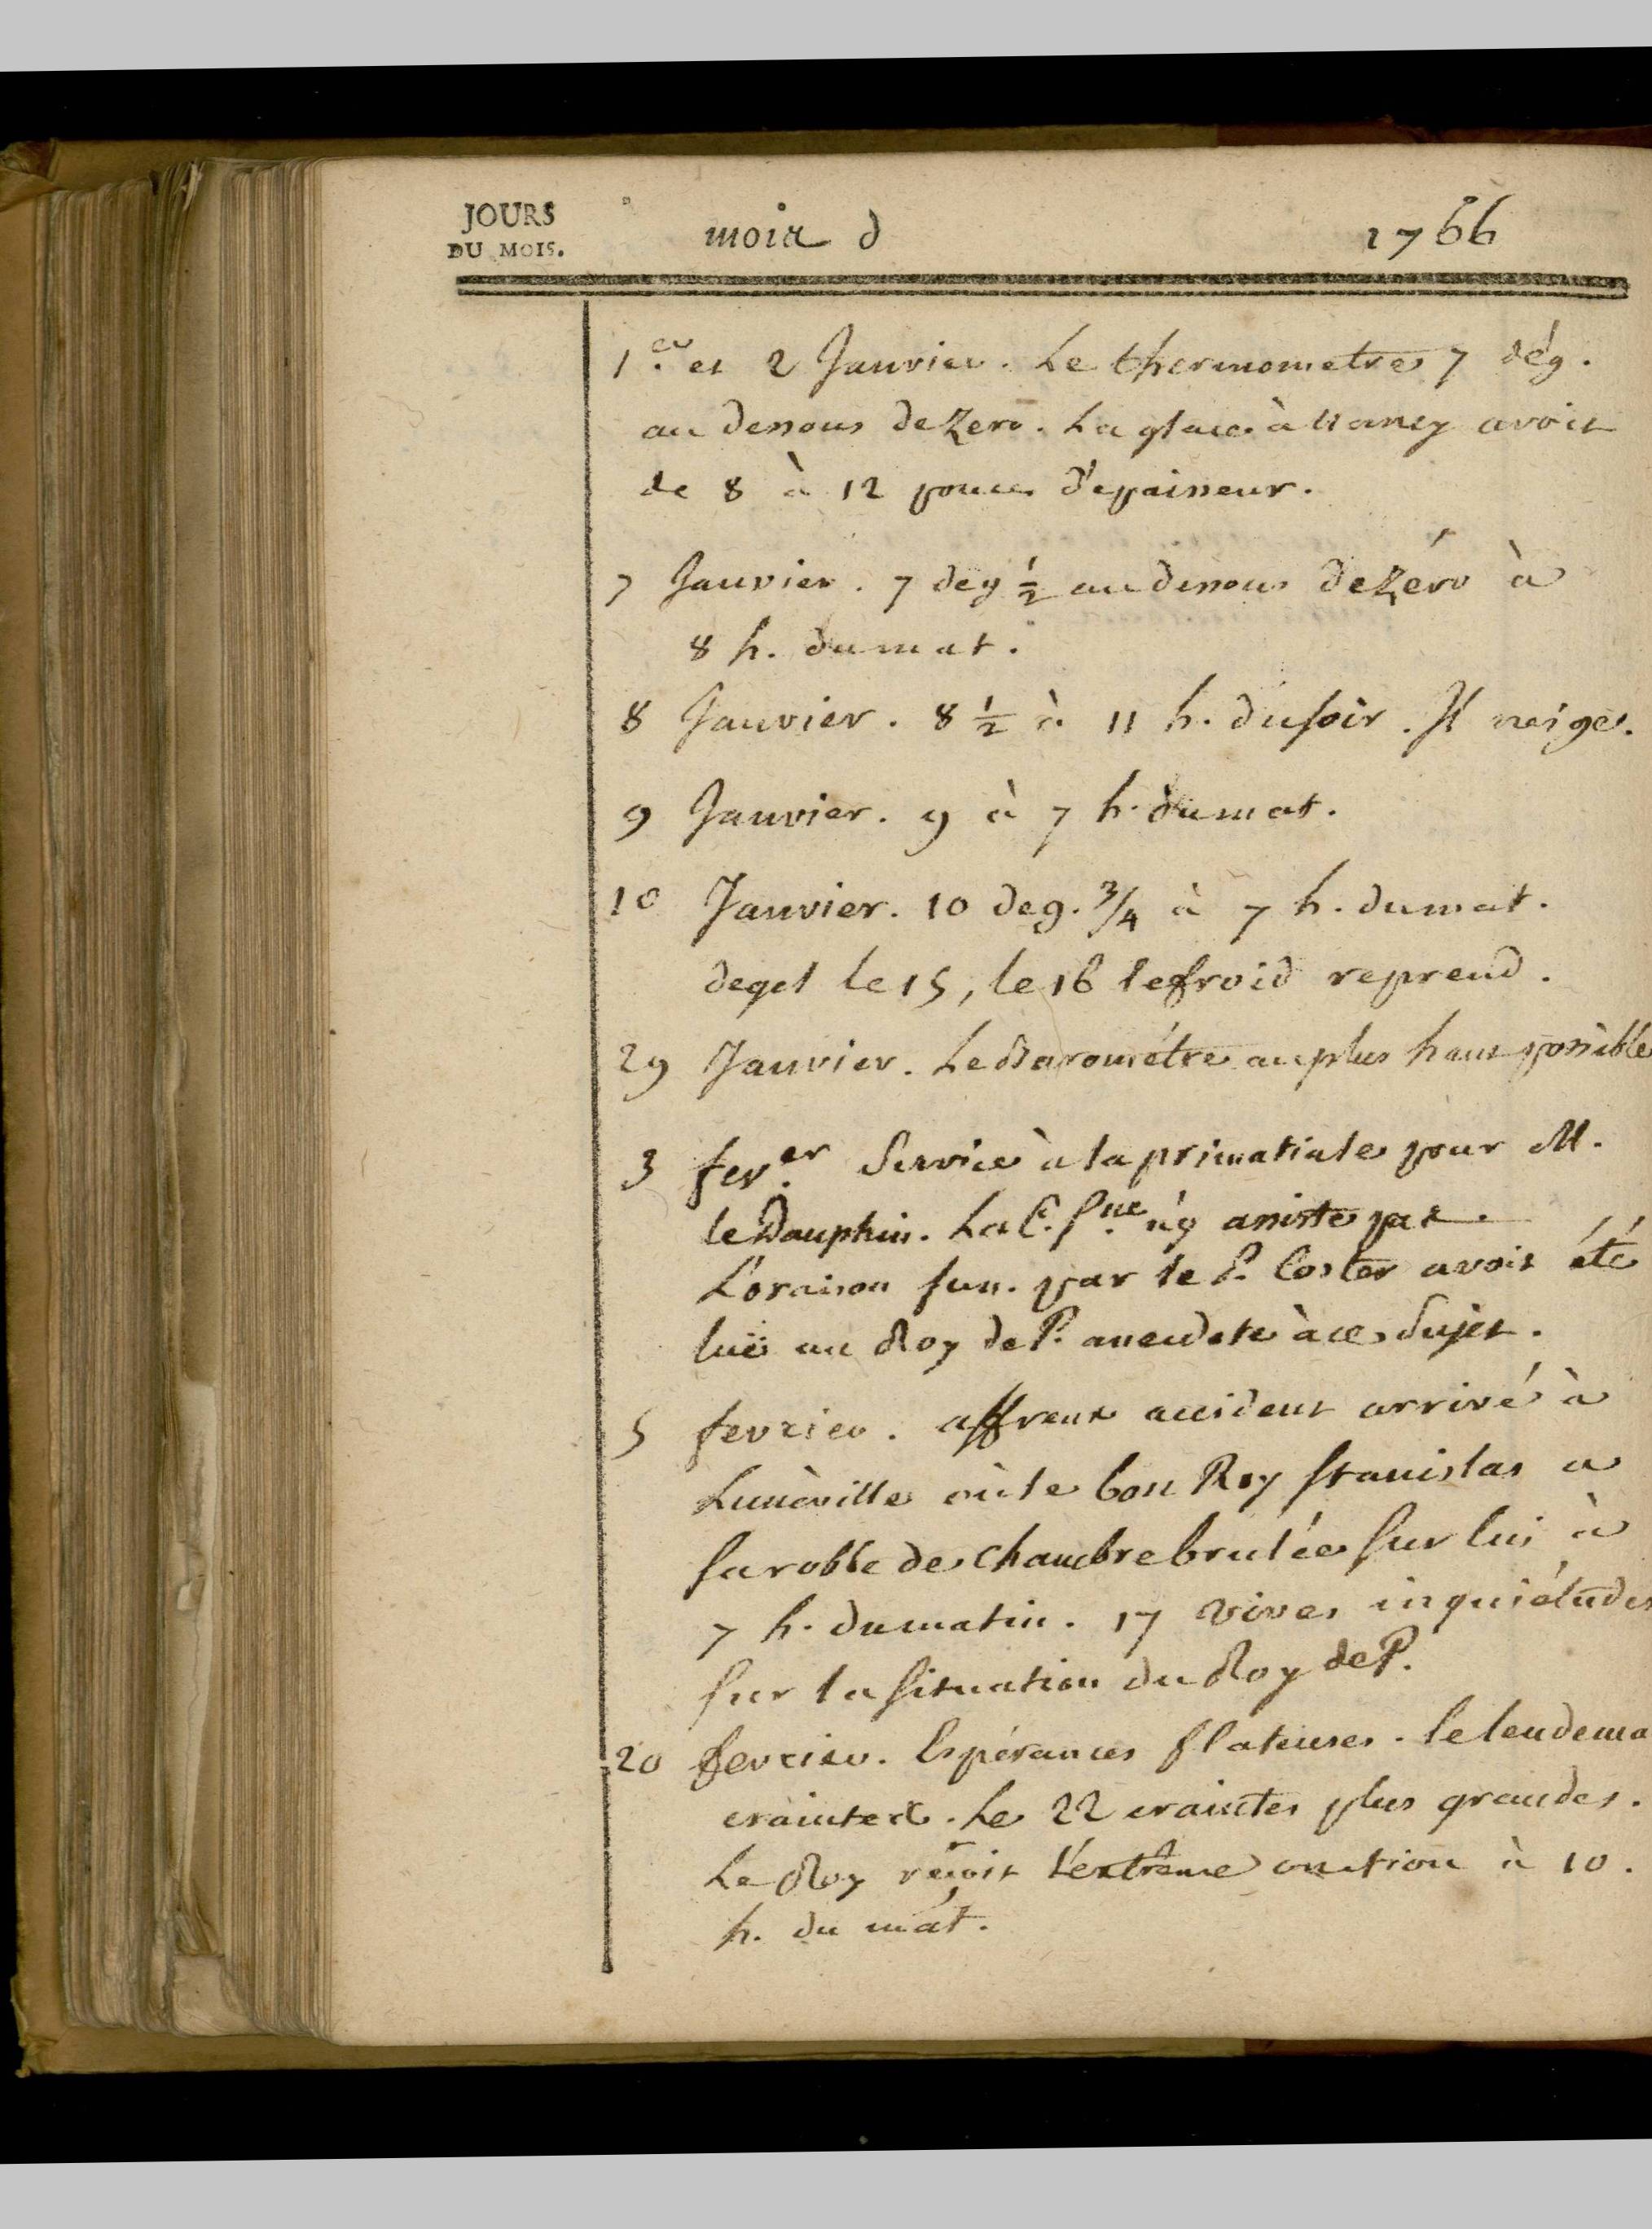 JOURS
DU MOIS.
mois d 1766
1.er et 2 Janvier. Le thermometre 7 dég.
au dessous de Zero. La glace à Nancy avoit
de 8 à 12 pouces d'epaisseur.
7 Janvier. 7 deg ½ au dessous de Zéro à
8 h. du mat.
8 Janvier. 8 ½ à 11 h. du soir. Il neige.
9 Janvier. 9 à 7 h. du mat.
10 Janvier. 10 deg. ¾ à 7 h. du mat.
degel le 15, le 16 le froid reprend.
29 Janvier. Le Barométre au plus haut possible
3 fev.er Service à la primatiale pour M.
le Dauphin. La C. S.ne n'y assiste pas.
L'oraison fun. par le P. Coster avoit été
luë au Roy de P. anecdote à ce sujet.
5 fevrier. affreux accident arrivé à
Lunéville où le bon Roy Stanislas a
sa robbe de chambre brulée sur lui à
7 h. du matin. 17 vives inquiétudes
sur la situation du Roy de P.
20 fevrier. Espérances flateuses. le lendema
craintes. Le 22 craintes plus grandes.
Le Roy reçoit l'extrême onction à 10.
h. du mat.